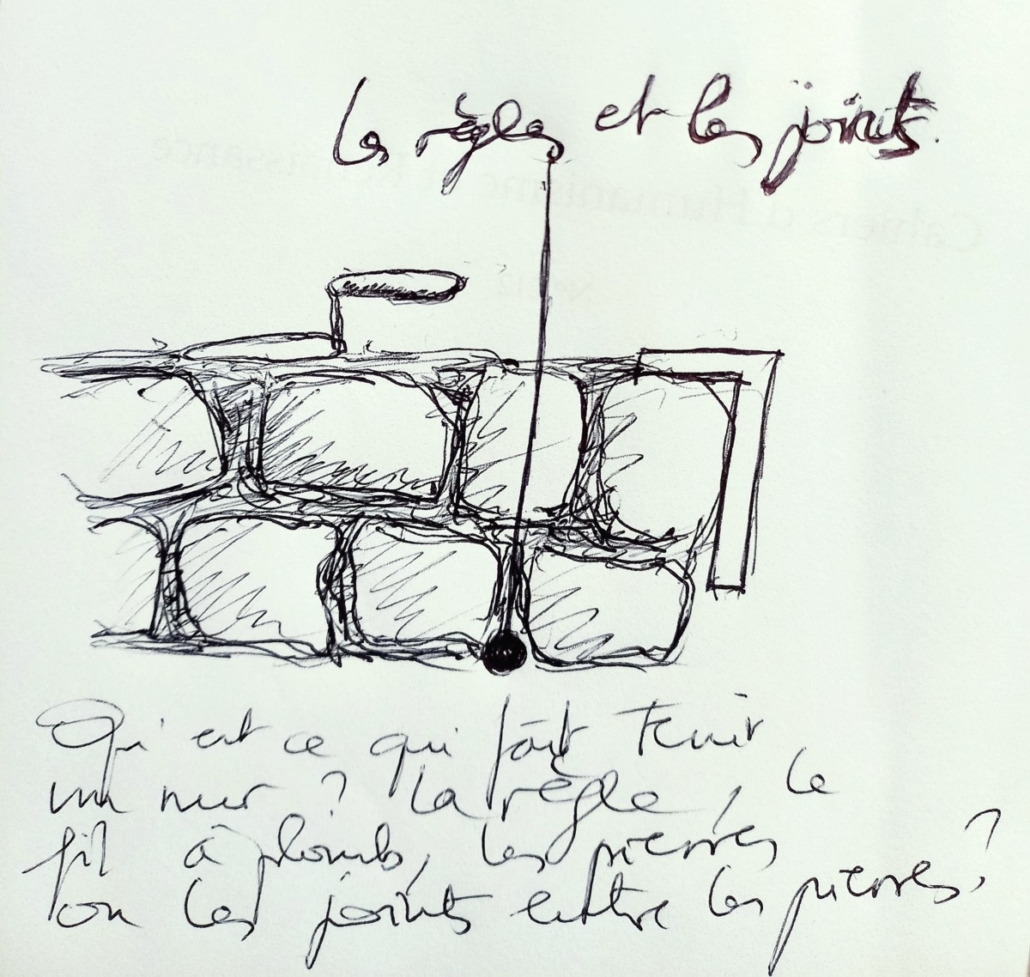 les règles et les joints.
Qu'est ce qui fait tenir
un mur ? La règle, le
fil à plomb, les pierres
ou les joints entre les pierres ?